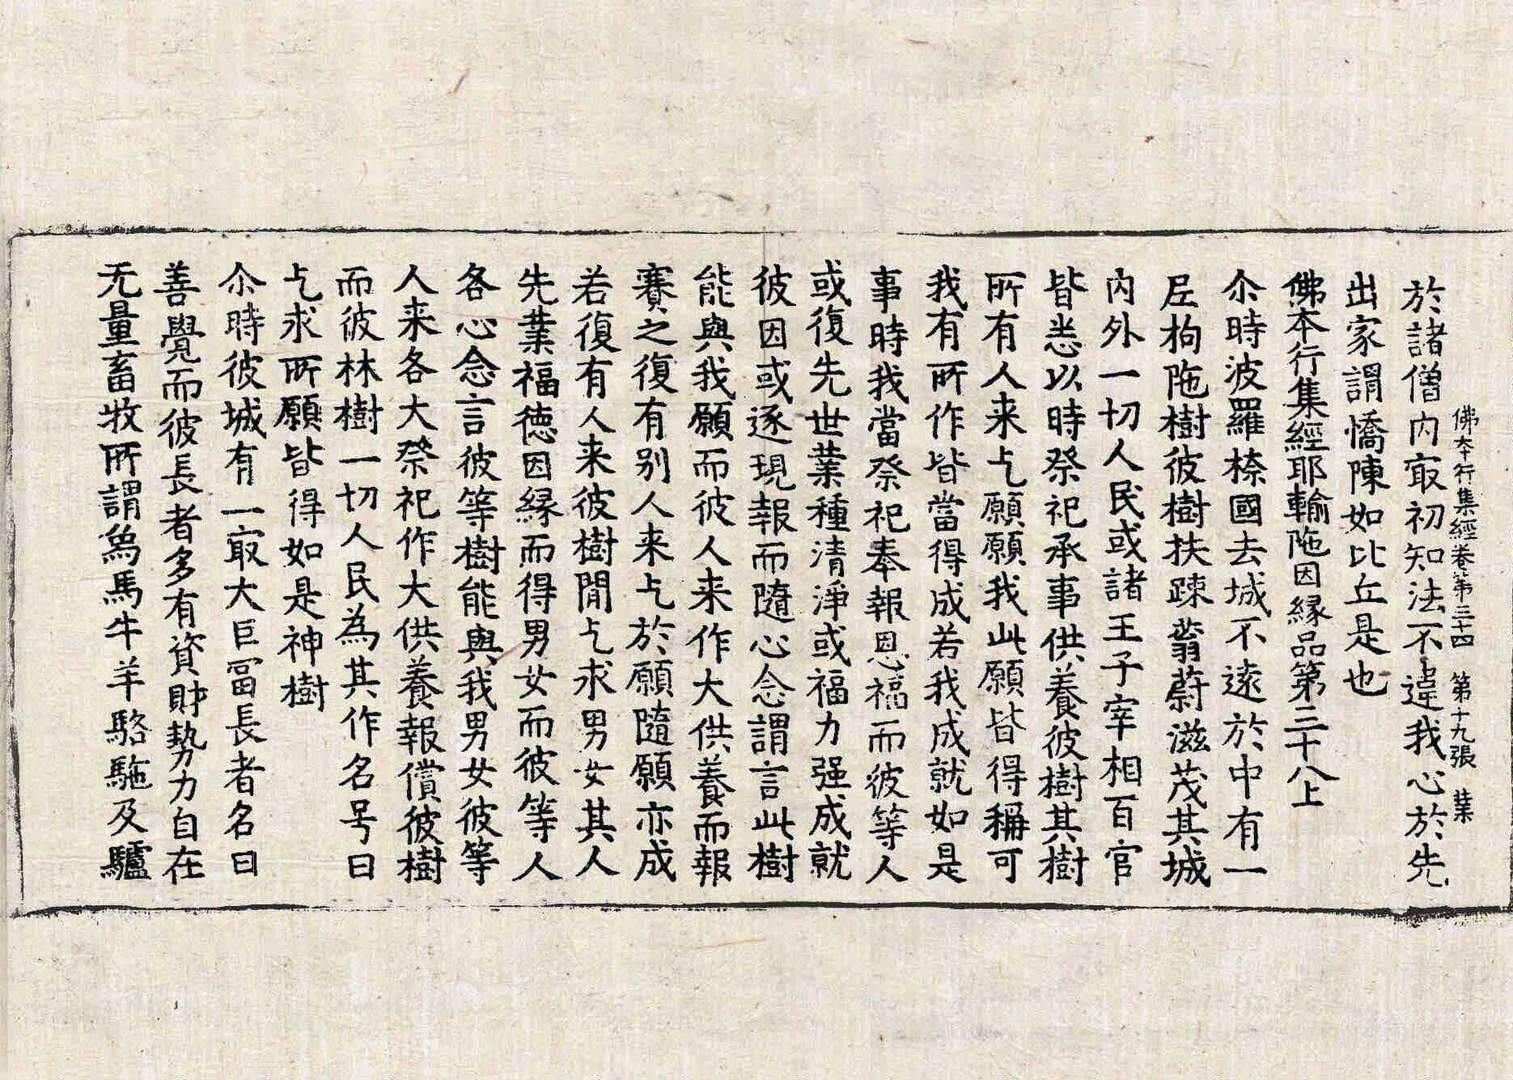 佛本行集經卷第三十四　第十九張　業
於諸僧內㝡初知法不違我心於先
出家謂憍陳如比丘是也
佛本行集經耶輸陁因縁品第三十八上
尒時波羅㮈國去城不遠於中有一
尼拘陁樹彼樹扶踈蓊蔚滋茂其城
內外一切人民或諸王子宰相百官
皆悉以時祭祀承事供養彼樹其樹
所有人来乞願願我此願皆得稱可
我有所作皆當得成若我成就如是
事時我當祭祀奉報恩福而彼等人
或復先世業種清淨或福力强成就
彼因或逐現報而隨心念謂言此樹
能與我願而彼人来作大供養而報
賽之復有别人来乞於願隨願亦成
若復有人来彼樹間乞求男女其人
先業福徳因縁而得男女而彼等人
各心念言彼等樹能與我男女彼等
人来各大祭祀作大供養報償彼樹
而彼林樹一切人民為其作名号曰
乞求所願皆得如是神樹
尒時彼城有一㝡大巨冨長者名曰
善覺而彼長者多有資財勢力自在
无量畜牧所謂象馬牛羊駱駞及驢